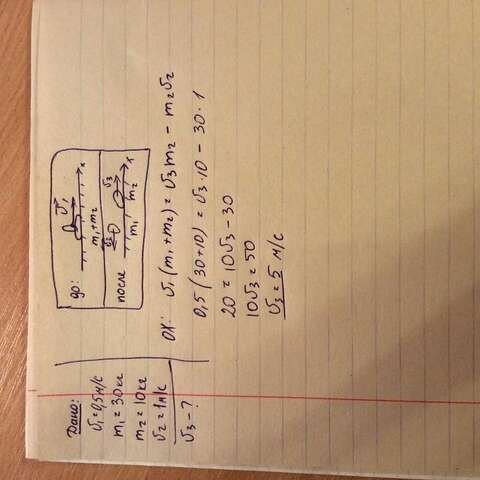 Дано:
v₁ = 0,5 м/с
m₁ = 30 кг
m₂ = 10 кг
v₂ = 1 м/с
v₃ - ?
до:
v₁
m₁+m₂
x
после
v₂
v₃
m₁
m₂
x
OX: v₁(m₁+m₂) = v₃m₂ - m₂v₂
0,5(30+10) = v₃·10 - 30·1
20 = 10v₃ - 30
10v₃ = 50
v₃ = 5 м/с